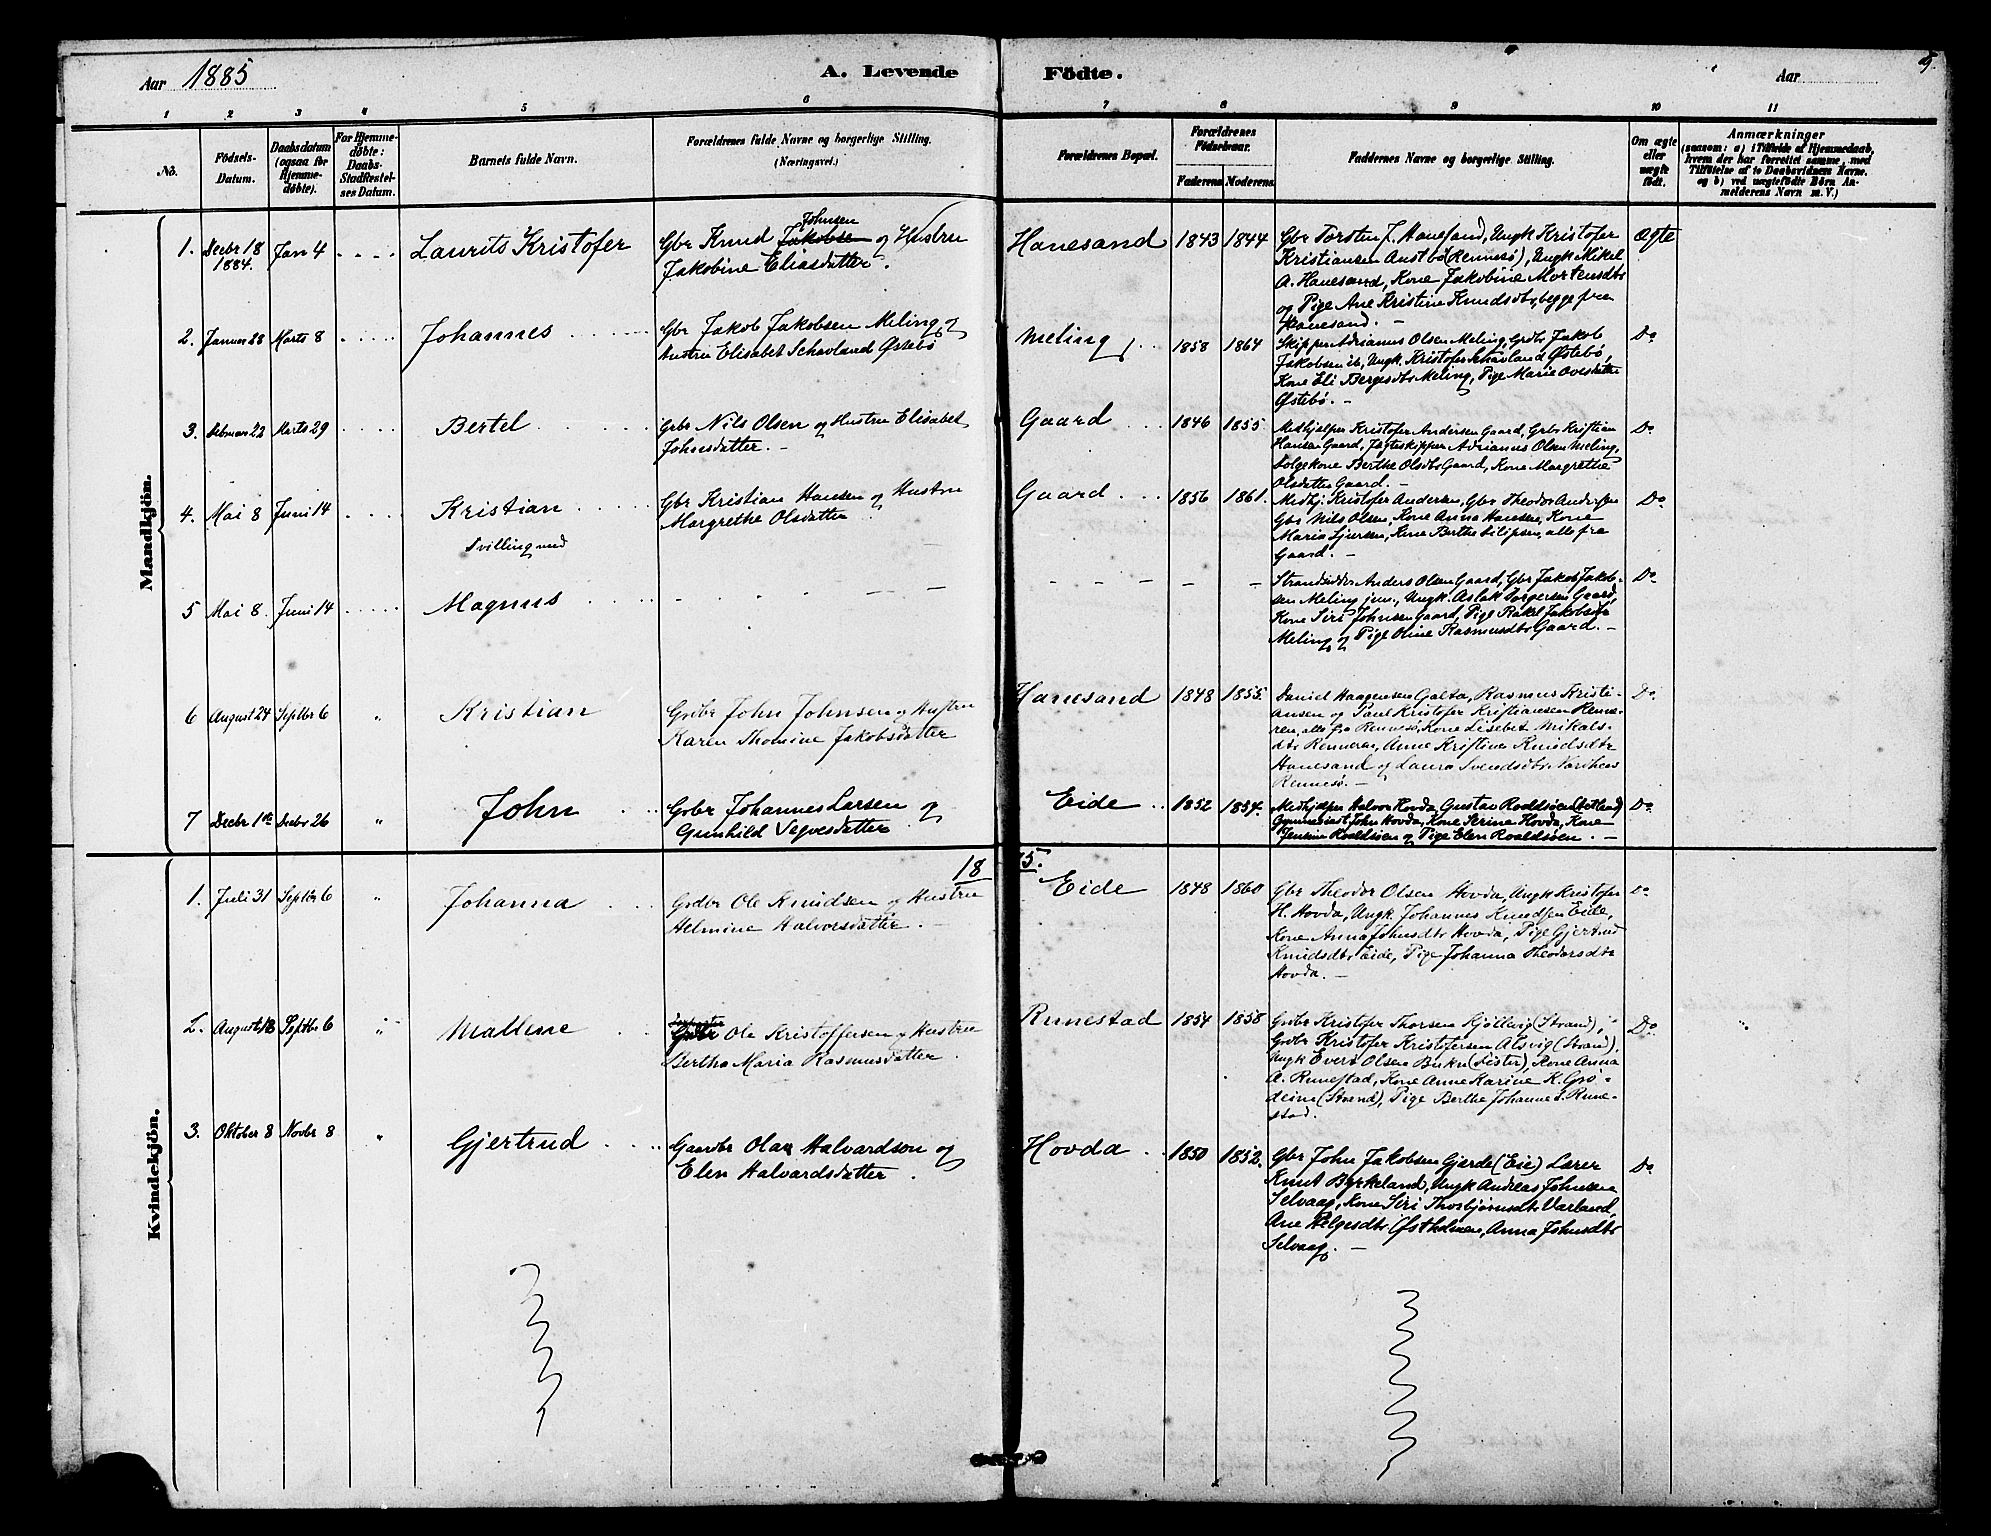 Aar 1885
A. Levende Födte.
Aar
5.
1 2 3 4 5 6 7 8 9 10 11
No.
Födsels-
Datum.
Daabsdatum
(ogsaa for
Hjemme-
døbte).
For Hjemme-
døbte:
Daabs-
Stadfæstel-
ses Datum.
Barnets fulde Navn.
Forældrenes fulde Navne og borgerlige Stilling.
(Næringsvei.)
Forældrenes Bopæl.
Forældrenes
Födselsaar.
Faderens Moderens.
Faddernes Navne og borgerlige Stilling.
Om ægte
eller
uægte
födt.
Anmærkninger
(saasom: a) i Tilfælde af Hjemmedaab,
hvem der har forrettet samme, med
Tilföielse af to Daabsvidners Navne,
og b) ved uægtefödte Börn An-
melderens Navn m. V.)
Mandkjön.
1. Decbr 18
1884.
Jan 4
Laurits Kristofer
Johnsen
Gbr Knud Jakobsen og Hustru
Jakobine Eliasdatter.
Hanesand 1843 1844
Gbr Torsten J. Hanesand, Ungk Kristofer
Kristiansen Austbø (Rennesø), Ungk Mikel
A. Hanesand, Kone Jakobine Mortensdtr
og Pige Ane Kristine Knudsdtr, begge fra
Hanesand. —
Ægte
2. Januar 28 Marts 8
Johannes
Gbr Jakob Jakobsen Meling og
Hustru Elisabet Schavland Østebø
Meling 1858 1864
Skipper Adrianus Olsen Meling, Grdb. Jakob
Jakobsen ib, Ungk. Kristofer Schavland Østebø,
Kone Eli Bergesdtr Meling, Pige Marie Ovesdatter
Østebø. —
Do
3. Februar 22 Marts 29
Bertel
Grbr Nils Olsen og Hustru Elisabet
Johnsdatter. —
Gaard 1846 1855
Medhjelper Kristofer Andersen Gaard, Grbr Kristian
Hansen Gaard, Jagteskipper Adrianus Olsen Meling,
Kone Margrethe
Olsdatter Gaard. —
Do
4. Mai 8 Juni 14
Kristian
Tvilling med
Gbr Kristian Hansen og Hustru
Margrethe Olsdatter
Gaard 1856 1861.
Medhj. Kristofer Andersen, Gbr Theodor Andersen
Gbr Nils Olsen, Kone Anna Hansen, Kone
Kone Berthe Filipsen, alle fra
Gaard. —
Do
5 Mai 8. Juni 14
Magnus
Strandsidder Anders Olsen Gaard, Gbr Jakob Jakob-
sen Meling jun., Ungk. Aslak Torgersen Gaard,
Kone Siri Johnsen Gaard, Pige Rakel Jakobsdtr
Meling og Pige Oline Rasmusdtr Gaard. —
Do
6 August 24 Septbr 6 "
Kristian
Grdbr John Johnsen og Hustru
Karen Thomine Jakobsdatter
Hanesand 1848 1855.
Daniel Haagensen Galta, Rasmus Kristi-
ansen og Paul Kristofer Kristiansen Renne-
ren, alle fra Rennesø, Kone Lisebet Mikals-
dtr Renneren, Anne Kristine Knudsdtr
Hanesand og Laura Svendsdtr
Rennesø. —
Do
7 Decbr 1ste Decbr 26 "
John
Grbr Johannes Larsen og
Gunhild Vegesdatter
Eide 1852 1854.
Medhjelper Halvor Hovda, Gustav Roaldsøen
Gymnasiast John Hovda, Kone Serine Hovda, Kone
Roaldsøen og Pige Elen Roaldsøen. —
Do
1885.
Kvindekjön.
1. Juli 31 Septbr 6 "
Johanna
Grdbr Ole Knudsen og Hustru
Helmine Halvorsdatter. —
Eide 1848 1860
Gbr Theodor Olsen Hovda, Ungk Kristofer
H. Hovda, Ungk. Johannes Knudsen Eide,
Kone Anna Johnsdtr Hovda, Pige Gjertrud
Knudsdtr Eide, Pige Johanna Theodorsdtr
Hovda. —
Do
2. August 18 Septbr 6 "
Mallene
Ole Kristoffersen og Hustru
Bertha Maria Rasmusdatter.
Runestad 1854 1858
Grbr Kristofer Thorsen Kjølevig (Strand),
Grdbr Kristofer Kristofersen Alsvig (Strand),
Ungk Evert Olsen Bukn Kone Anna
A. Runestad, Kone Anne Karine K. Grø-
deim (Strand), Pige Berthe Johanne S. Rune-
stad.
Do
3. Oktober 8 Novbr 8 "
Gjertrud
Gaardbr Olai Halvardson og
Elen Halvardsdatter.
Hovda 1850 1852.
Gbr John Jakobsen Gjerde (Eie) Lærer
Knut Byrkeland, Ungk Andreas Johnsen
Selvaag, Kone Siri Thorbjørnsdtr Varland,
Ane Helgesdtr Østholmen, Anna Johnsdtr
Selvaag. —
Do